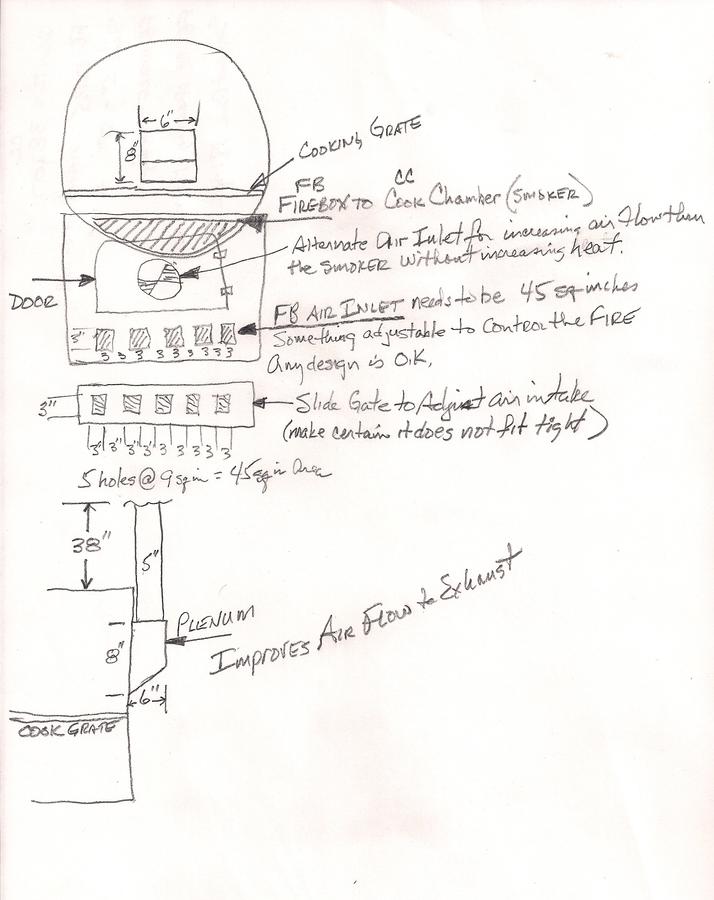 6"
8"
COOKING GRATE
FB CC
FIREBOX TO COOK CHAMBER (SMOKER)
Alternate Air Inlet for increasing air flow thru
the SMOKER without increasing heat.
DOOR
FB AIR INLET needs to be 45 sq inches
Something adjustable to Control the FIRE
Any design is O.K.
3"
3 3 3 3 3 3 3 3 3
3"
Slide Gate to Adjust air intake
(make certain it does not fit tight)
3" 3" 3" 3" 3 3 3 3 3
5 holes @ 9 sq in = 45 sq in Area
38"
5"
PLENUM
IMPROVES AIR FLOW to EXHAUST
8"
6"
COOK GRATE